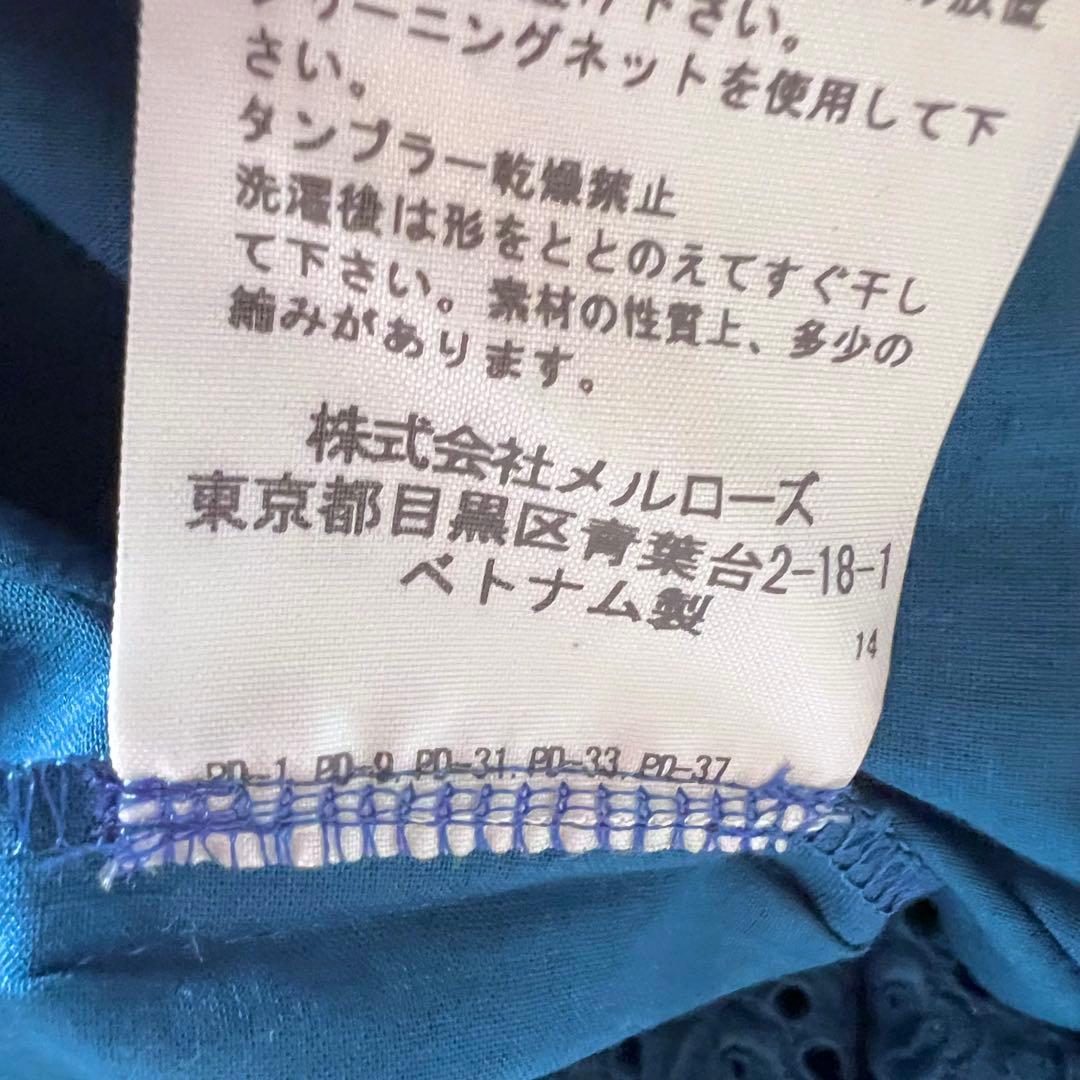 下さい。
クリーニングネットを使用して下
さい。
タンブラー乾燥禁止
洗濯後は形をととのえてすぐ干し
て下さい。素材の性質上、多少の
縮みがあります。
株式会社メルローズ
東京都目黒区青葉台2-18-1
ベトナム製
14
PD-1 PD-9 PD-31 PD-33 PD-37